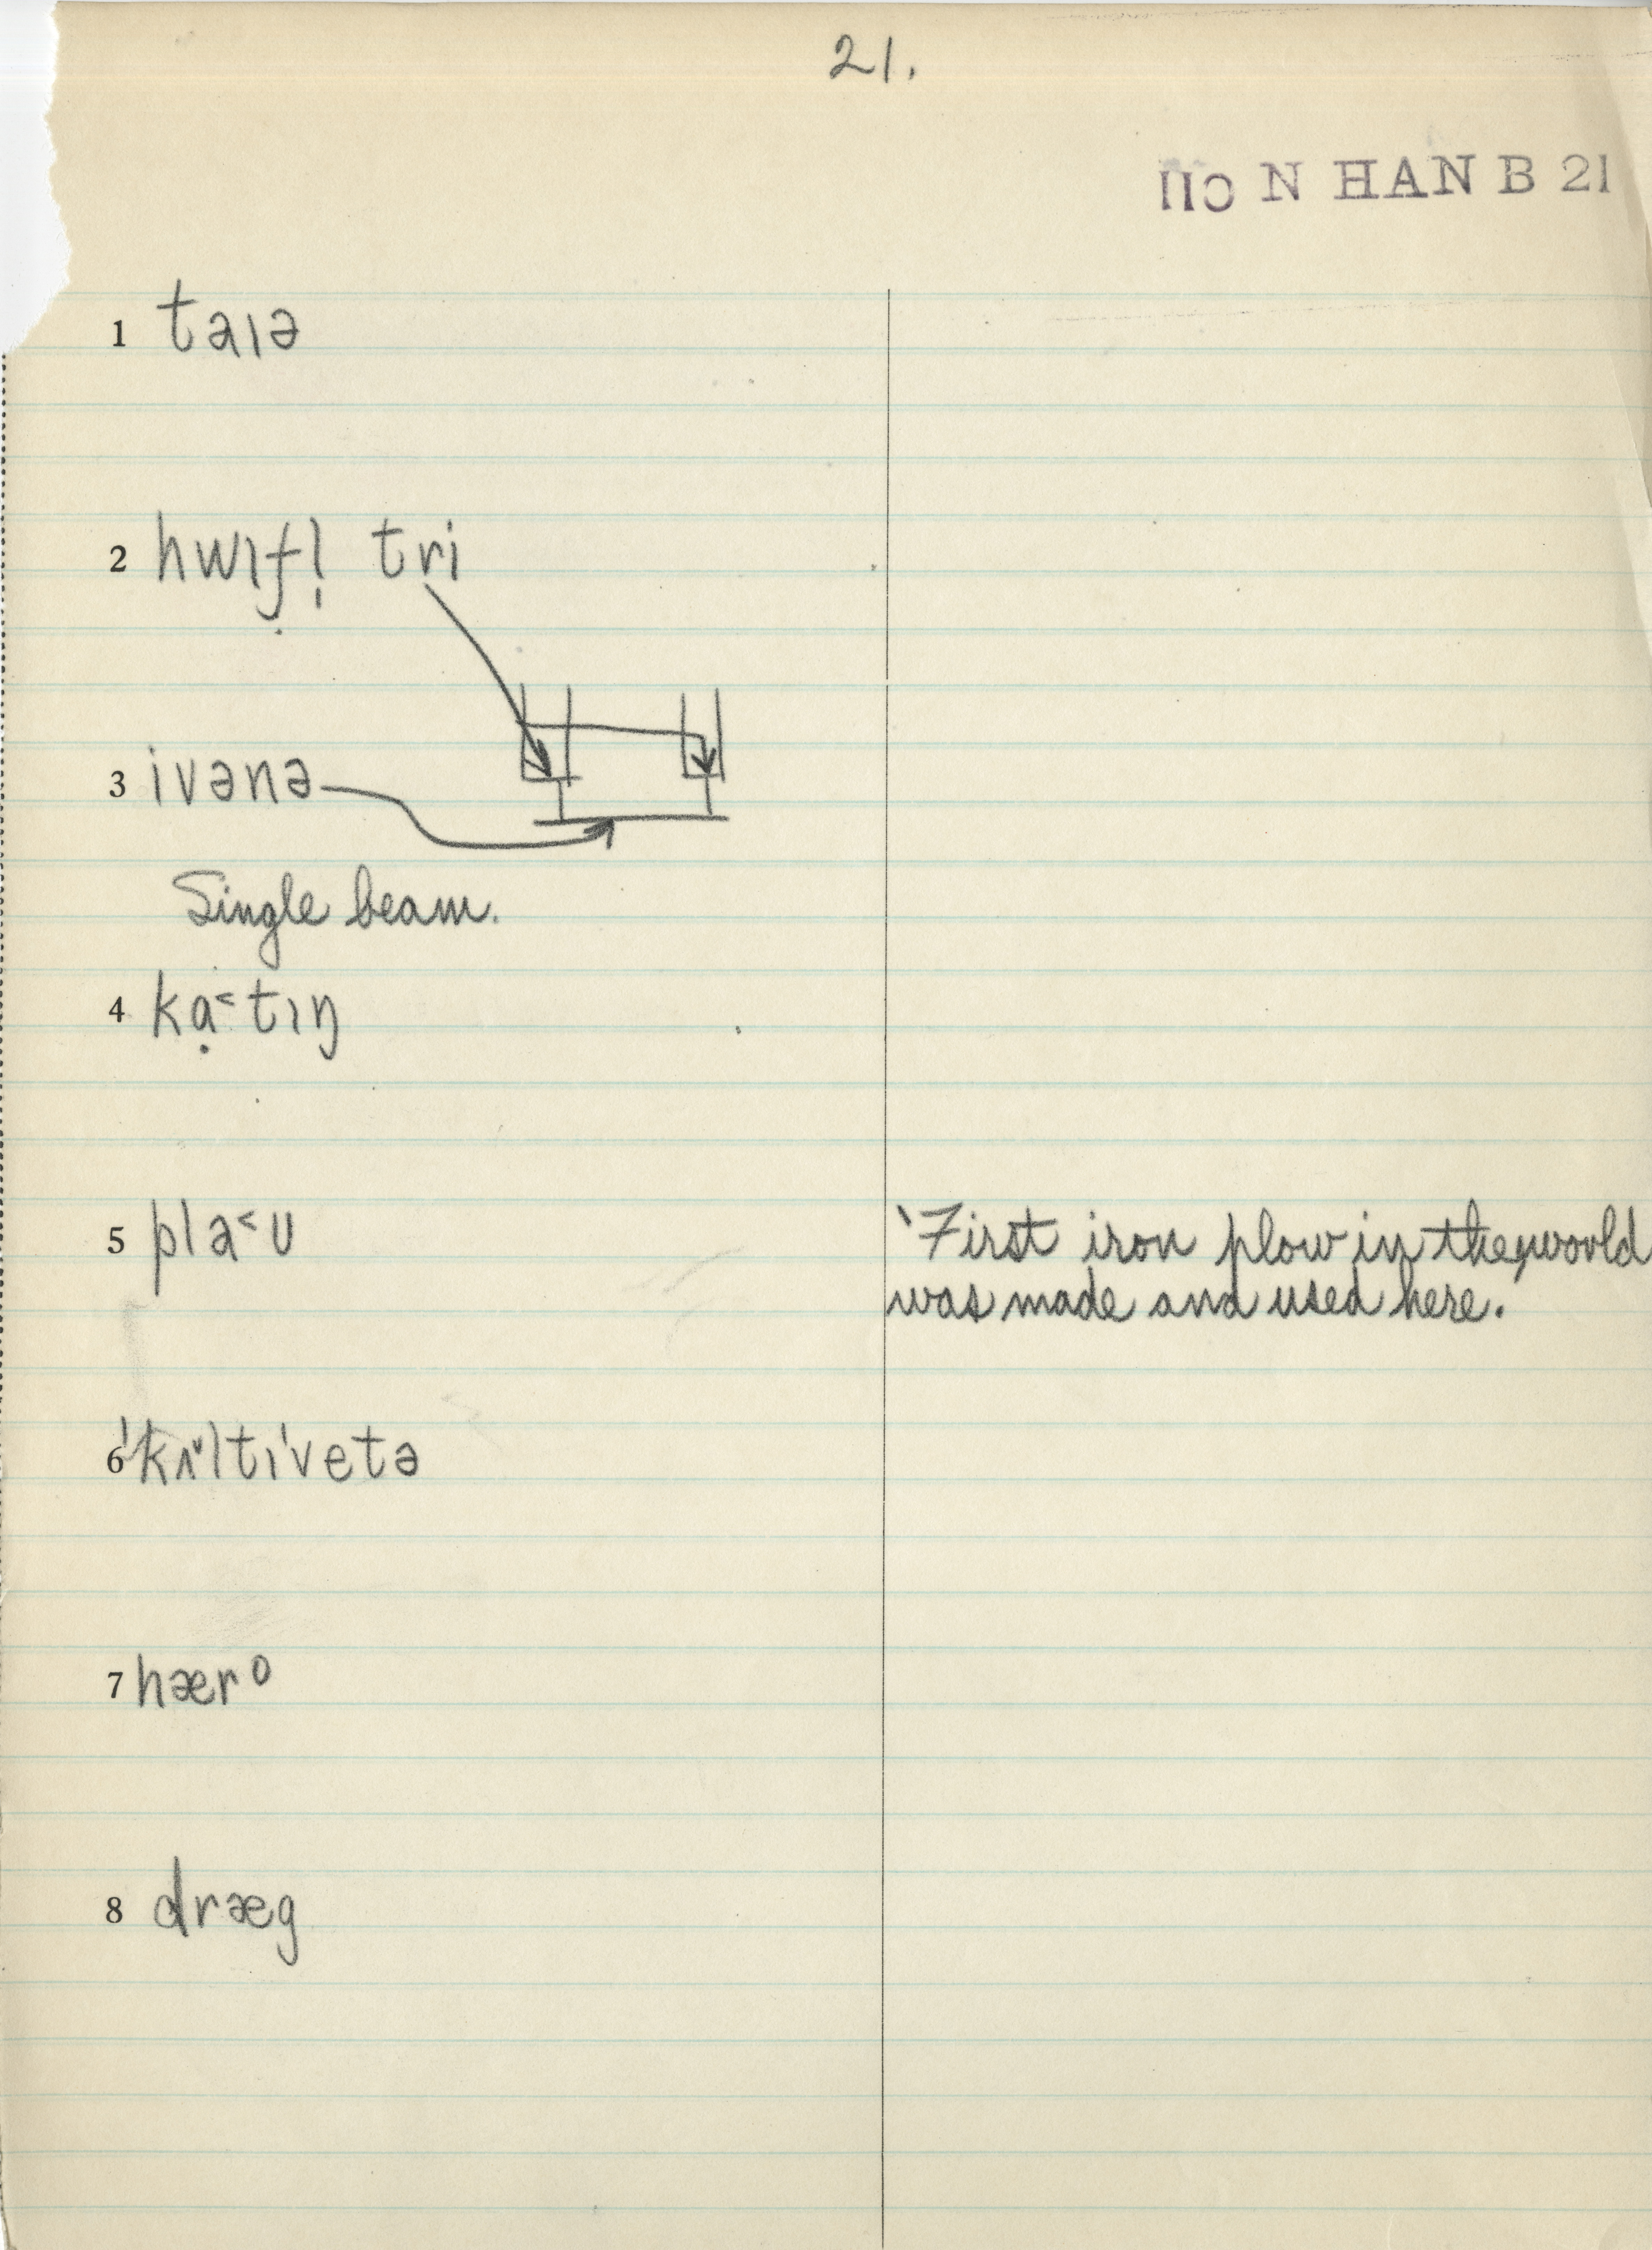 21.
110 N HAN B 21
1 taɪə
2 hwɪfl̩ tri
3 ivənə
Single beam.
4 kɑ̣˂tɪŋ
5 pla˂ʊ
ˋFirst iron plow in the world
was made and used here.
6 ˈkʌ˅ltɪˈvetə
7 hærᵒ
8 dræg